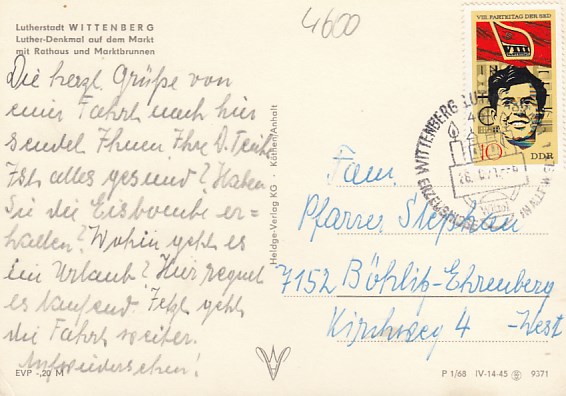 Lutherstadt WITTENBERG
Luther-Denkmal auf dem Markt
mit Rathaus und Marktbrunnen
4600
Die herzl. Grüße von
einer Fahrt nach hier
sendet Ihnen Ihre D.
Ist alles gesund? Haben
Sie die Eisbombe er-
halten? Wohin geht es
im Urlaub? Hier regnet
es laufend. Jetzt geht
die Fahrt weiter.
Aufwiedersehen!
EVP -,20 M
Heldge-Verlag KG Köthen/Anhalt
VIII. PARTEITAG DER SED
VIII
10
DDR
WITTENBERG LUTH
4
IN ALLER WELT
Fam.
Pfarrer Stephan
7152 Böhlitz-Ehrenberg
Kirchweg 4 -West
P 1/68 IV-14-45 9371